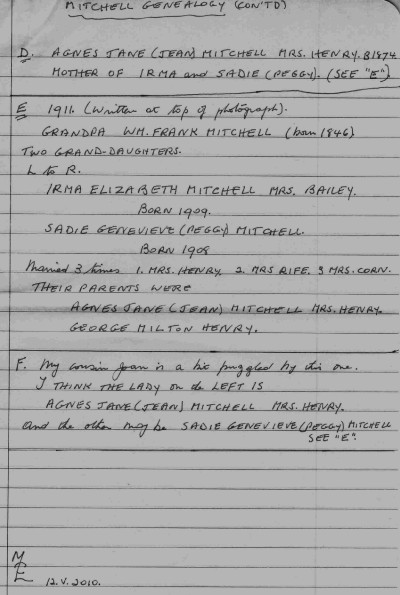 MITCHELL GENEALOGY (CON'TD)
D. AGNES JANE (JEAN) MITCHELL MRS. HENRY. B1874
MOTHER OF IRMA and SADIE (PEGGY). (SEE "E").
E 1911. (Written at top of photograph).
GRANDPA WM. FRANK MITCHELL (born 1846)
TWO GRAND-DAUGHTERS.
L to R.
IRMA ELIZABETH MITCHELL MRS. BAILEY.
BORN 1909.
SADIE GENEVIEVE (PEGGY) MITCHELL.
BORN 1908
Married 3 times 1. MRS. HENRY. 2. MRS RIFE. 3 MRS. CORN.
THEIR PARENTS WERE
AGNES JANE (JEAN) MITCHELL MRS. HENRY.
GEORGE MILTON HENRY.
F. My cousin Joan is a bit puzzled by this one.
I THINK THE LADY on the LEFT IS
AGNES JANE (JEAN) MITCHELL MRS. HENRY.
And the other may be SADIE GENEVIEVE (PEGGY) MITCHELL
SEE "E".
12.V.2010.